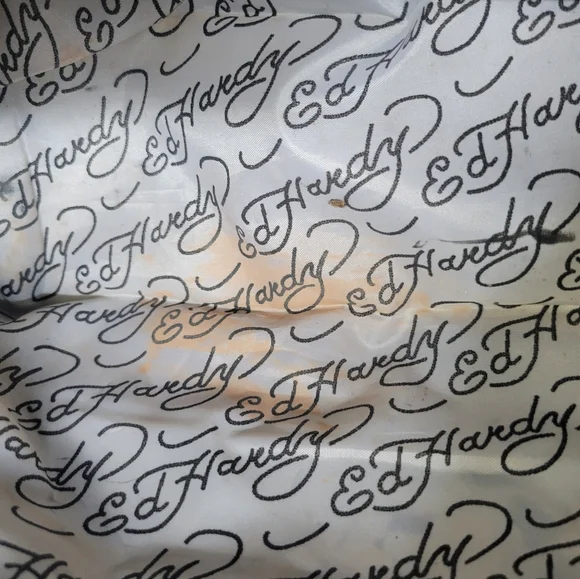 Hardy
Ed
Ed
Ed Hardy
Ed
Ed
Ed Hardy
Ed Hardy
Ed Hardy
Ed Har
Ed Hardy
Ed Hardy
Hardy
Ed Hardy
Hardy
Ed Hardy
Ed Hardy
Ed Ha
Ed Hardy
Ed Hardy
Hardy
Ed Hardy
Hardy